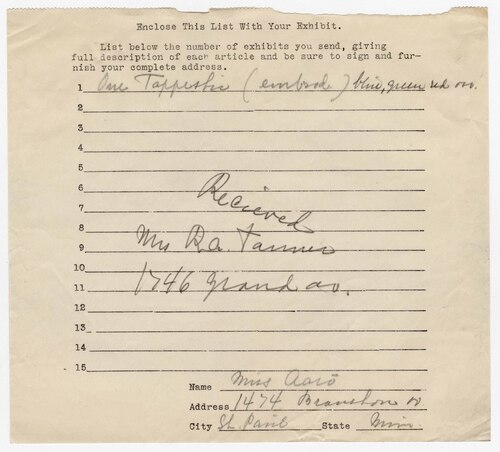 Enclose This List With Your Exhibit.
List below the number of exhibits you send, giving
full description of each article and be sure to sign and fur-
nish your complete address.
1 One Tappestri (embrod) blue, green red
2
3
4
5
6
Recieved
7
8
9 Mrs R.A. Tanner
10
11 1746 Grand av.
12
13
14
15
Name Miss
Address 1474
City St. Paul State Minn.